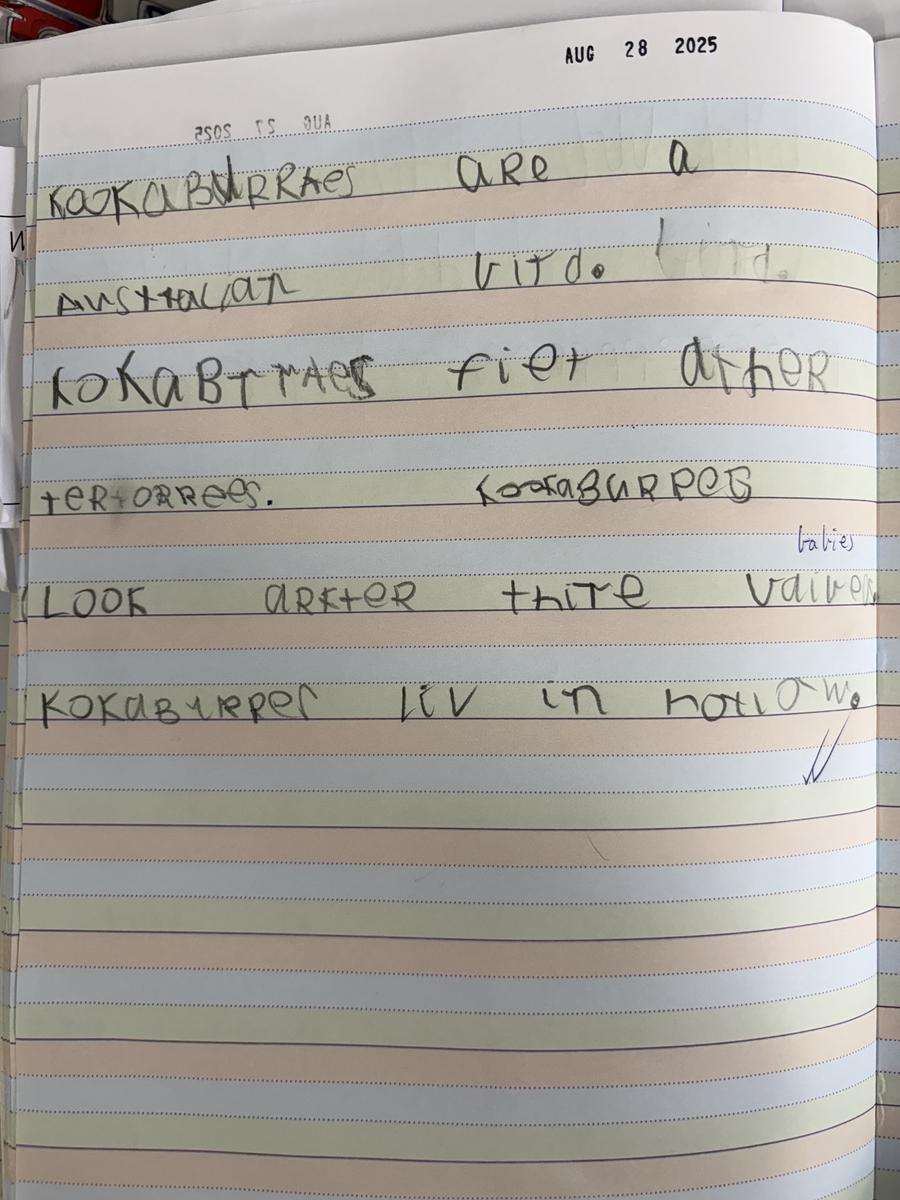 AUG 28 2025
AUG 27 2025
KOOKABURRAes are a
AUSTralian bird. bird.
KOKABrrAes fiet arher
tertorrees. KookaBURRes
babies
Look arfter thire vaives
KOKABurres liv in hollow.